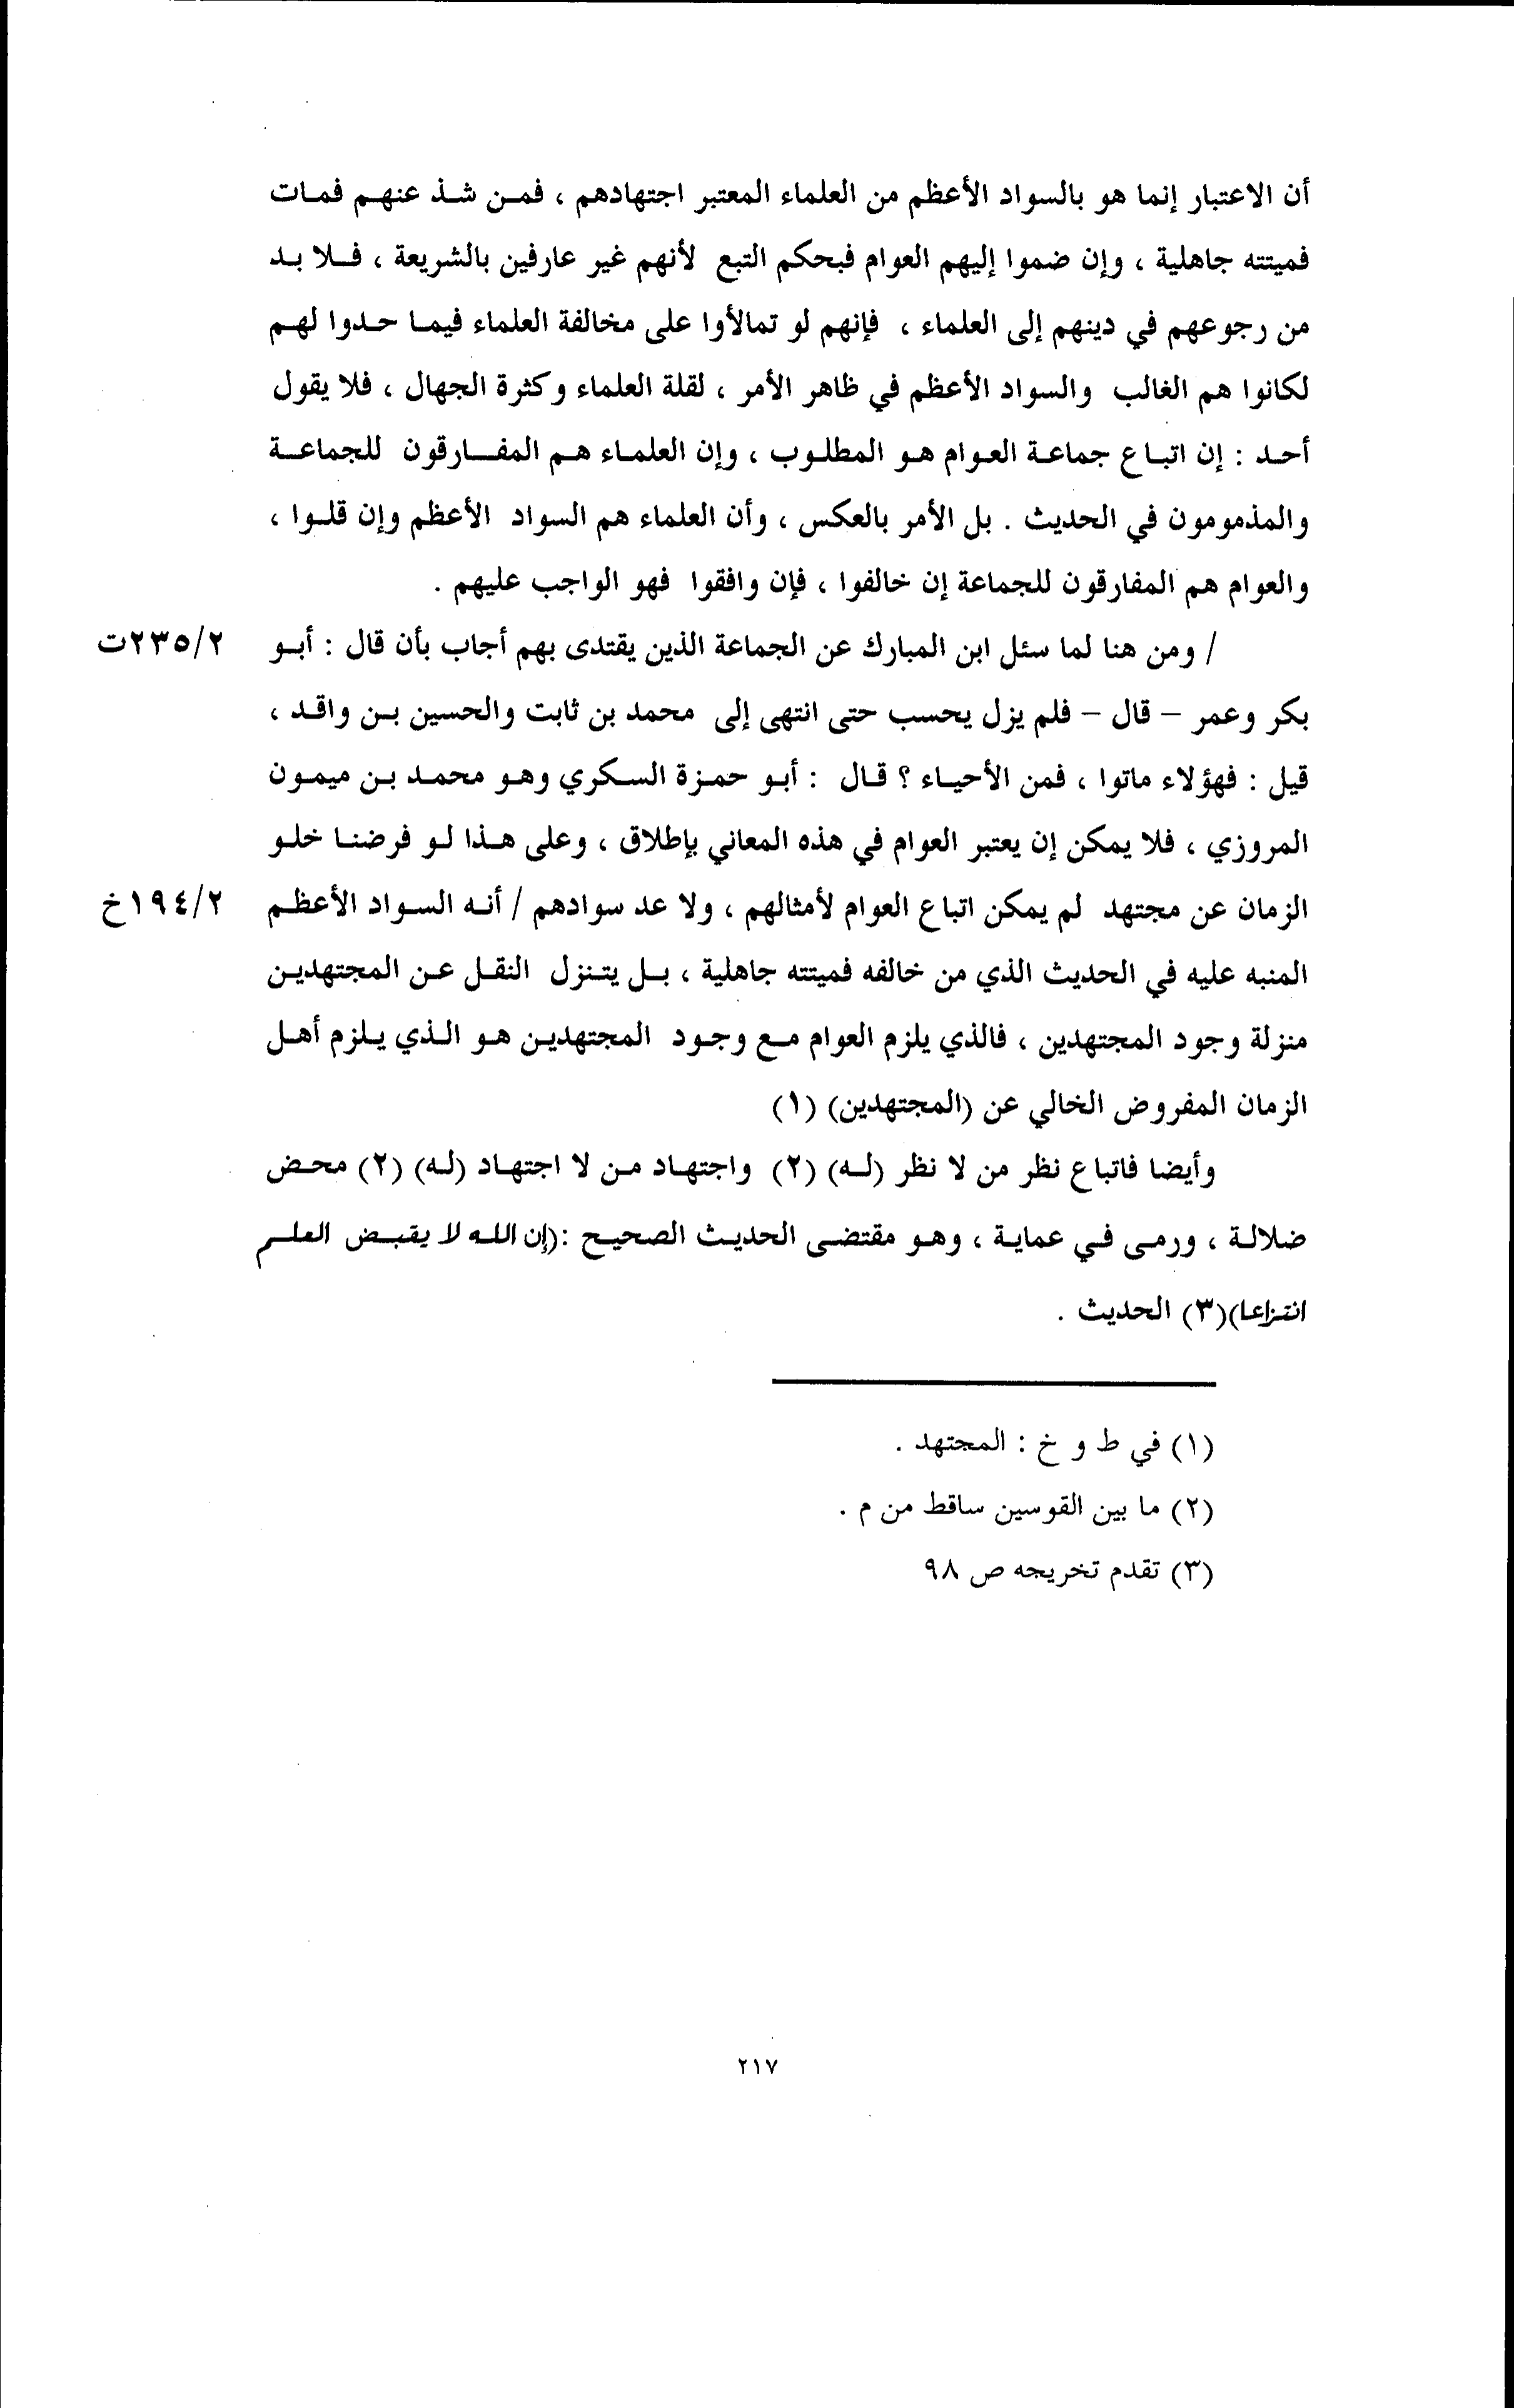 أن الاعتبار إنما هو بالسواد الأعظم من العلماء المعتبر اجتهادهم ، فمن شذ عنهم فمات
فميتته جاهلية ، وإن ضموا إليهم العوام فبحكم التبع لأنهم غير عارفين بالشريعة ، فلا بد
من رجوعهم في دينهم إلى العلماء ، فإنهم لو تمالأوا على مخالفة العلماء فيما حدوا لهم
لكانوا هم الغالب والسواد الأعظم في ظاهر الأمر ، لقلة العلماء وكثرة الجهال ، فلا يقول
أحد : إن اتباع جماعة العوام هو المطلوب ، وإن العلماء هم المفارقون للجماعة
والمذمومون في الحديث . بل الأمر بالعكس ، وأن العلماء هم السواد الأعظم وإن قلوا ،
والعوام هم المفارقون للجماعة إن خالفوا ، فإن وافقوا فهو الواجب عليهم .
/ ومن هنا لما سئل ابن المبارك عن الجماعة الذين يقتدى بهم أجاب بأن قال : أبو ٢٣٥/٢ت
بكر وعمر – قال – فلم يزل يحسب حتى انتهى إلى محمد بن ثابت والحسين بن واقد ،
قيل : فهؤلاء ماتوا ، فمن الأحياء ؟ قال : أبو حمزة السكري وهو محمد بن ميمون
المروزي ، فلا يمكن إن يعتبر العوام في هذه المعاني بإطلاق ، وعلى هذا لو فرضنا خلو
الزمان عن مجتهد لم يمكن اتباع العوام لأمثالهم ، ولا عد سوادهم / أنه السواد الأعظم ١٩٤/٢خ
المنبه عليه في الحديث الذي من خالفه فميتته جاهلية ، بل يتنزل النقل عن المجتهدين
منزلة وجود المجتهدين ، فالذي يلزم العوام مع وجود المجتهدين هو الذي يلزم أهل
الزمان المفروض الخالي عن (المجتهدين) (١)
وأيضا فاتباع نظر من لا نظر (له) (٢) واجتهاد من لا اجتهاد (له) (٢) محض
ضلالة ، ورمى في عماية ، وهو مقتضى الحديث الصحيح :(إن الله لا يقبض العلم
انتزاعا)(٣) الحديث .
(١) في ط و خ : المجتهد .
(٢) ما بين القوسين ساقط من م .
(٣) تقدم تخريجه ص ٩٨
٢١٧